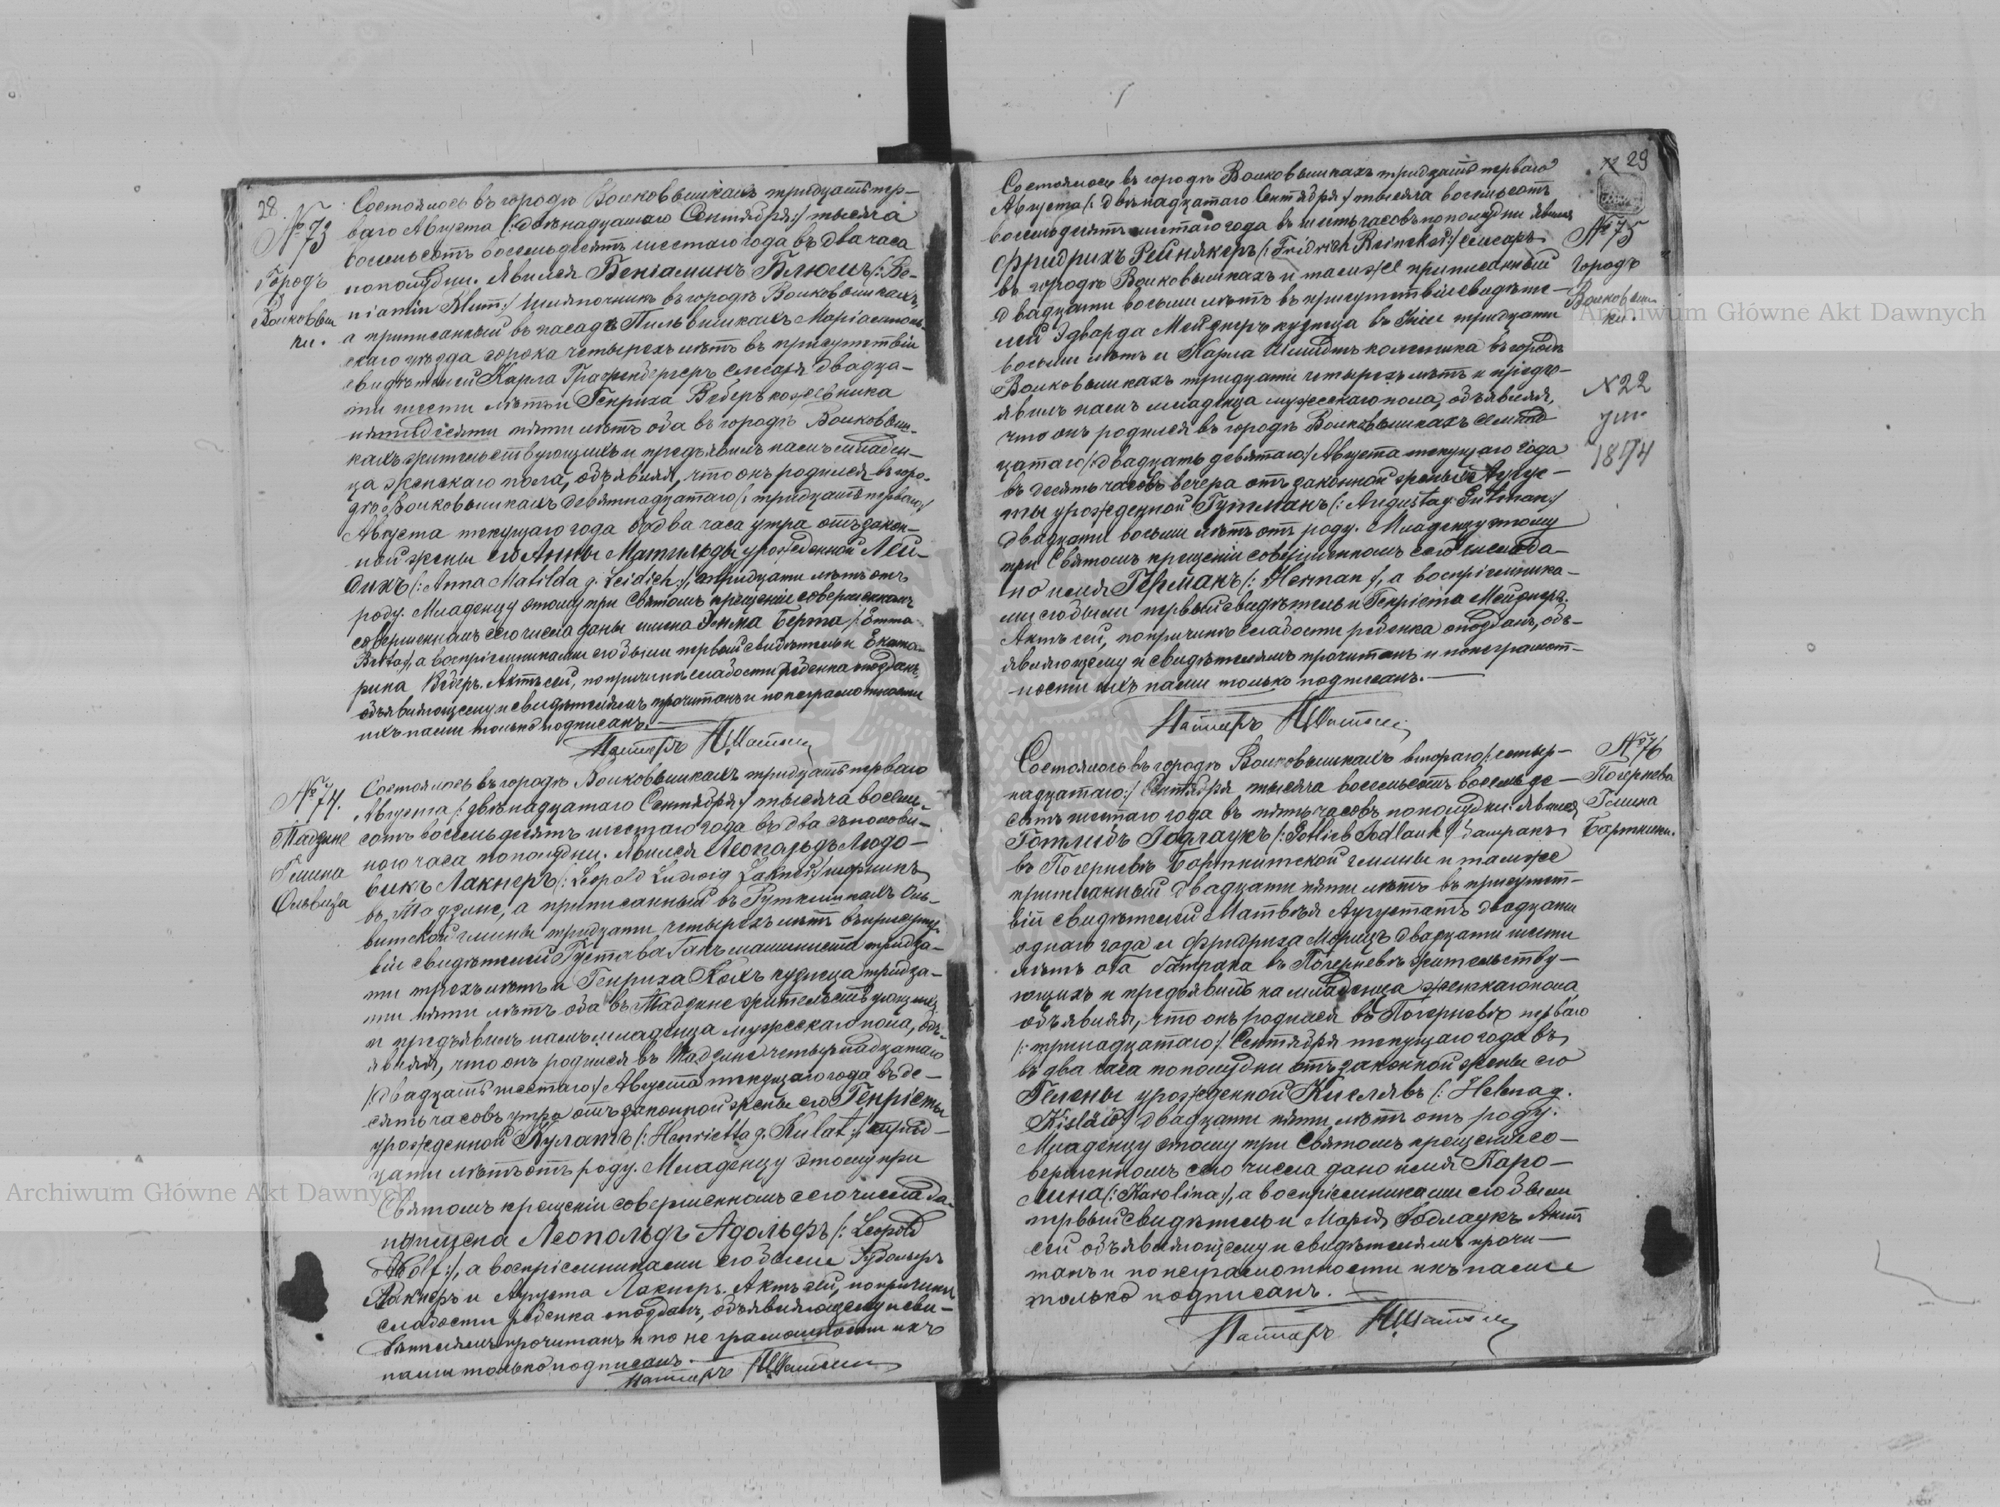 28.
№ 73
Городъ
Волковыш
ки.
Состоялось въ городѣ Волковышкахъ тридцать пер-
ваго Августа /:двѣнадцатаго Сентября:/ тысяча
восемьсотъ восемьдесятъ шестаго года въ два часа
пополудни. Явился Беніаминъ Блюмъ /: Be-
niamin Blum:/ шляпочникъ въ городѣ Волковышкахъ,
а приписанный въ посадѣ Пильвишкахъ Маріамполь-
скаго уѣзда сорока четырехъ лѣтъ въ присутствіи
свидѣтелей Карла слесаря двадца-
ти шести лѣтъ и Генриха Веберъ кожевника
пятидесяти пяти лѣтъ оба въ городѣ Волковыш-
кахъ жительствующихъ и предъявилъ намъ младен-
ца женскаго пола, объявляя, что онъ родился въ горо-
дѣ Волковышкахъ девятнадцатаго /: тридцать перваго:/
Августа текущаго года въ два часа утра отъ закон-
ной жены его Анны Матильды урожденной Лей-
дихъ /: Anna Matilda g. Leidich:/ тридцати лѣтъ отъ
роду. Младенцу этому при Святомъ крещеніи совершенномъ
совершенномъ сего числа даны имена Эмма Берта /: Emma
Berta:/, а воспріемниками его были первый свидѣтель и Екате-
рина Веберъ. Актъ сей, по причинѣ слабости ребенка опозданъ,
объявляющему и свидѣтелямъ прочитанъ и по неграмотности
ихъ нами только подписанъ.
Пасторъ
№ 74.
Тадзине
Гмина
Ольвита
Состоялось въ городѣ Волковышкахъ тридцать перваго
Августа /: двѣнадцатаго Сентября:/ тысяча восемь-
сотъ восемьдесятъ шестаго года въ два съ полови-
ною часа пополудни. Явился Леопольдъ Людо-
викъ Лакнеръ /: Leopold Ludwig Lakner:/
въ Тадзине, а приписанный въ Гуткишкахъ Оль-
витской гмины тридцати четырехъ лѣтъ въ присутст-
віи свидѣтелей Густава Гакъ машиниста тридца-
ти трехъ лѣтъ и Генриха Кохъ кузнеца тридца-
ти пяти лѣтъ оба въ Тадзине жительствующихъ
и предъявилъ намъ младенца мужескаго пола, объ-
являя, что онъ родился въ Тадзине четырнадцатаго
/: двадцать шестаго:/ Августа текущаго года въ де-
сять часовъ утра отъ законной жены его Генріеты
урожденной Кулатъ /: Henrietta g. Kulat:/ тридц-
цати лѣтъ отъ роду. Младенцу этому при
Святомъ крещеніи совершенномъ сего числа да-
ны имена Леопольдъ Адольфъ /: Leopold
Adolf:/, а воспріемниками его были
Лакнеръ и Августа Лакнеръ. Актъ сей, по причинѣ
слабости ребенка опозданъ, объявляющему и сви-
дѣтелямъ прочитанъ и по не грамотности ихъ
нами только подписанъ.
Пасторъ
29
№ 75
Городъ
Волковыш
ки.
№ 22
1894
Состоялось въ городѣ Волковышкахъ тридцать перваго
Августа /: двѣнадцатаго Сентября:/ тысяча восемьсотъ
восемьдесятъ шестаго года въ шесть часовъ пополудни явился
Фридрихъ Рейнякеръ /: Fridrich Reineker:/ слесарь
въ городѣ Волковышкахъ и тамъ же приписанный
двадцати восьми лѣтъ въ присутствіи свидѣте-
лей Эдварда Мейднеръ кузнеца въ тридцати
восьми лѣтъ и Карла Шмидтъ колесника въ городѣ
Волковышкахъ тридцати четырехъ лѣтъ и предъ-
явилъ намъ младенца мужескаго пола, объявляя,
что онъ родился въ городѣ Волковышкахъ семнад-
цатаго /: двадцать девятаго:/ Августа текущаго года
въ десять часовъ вечера отъ законной жены его Авгус-
ты урожденной Гутманъ /: Augusta g. Gutman:/
двадцати восьми лѣтъ отъ роду. Младенцу этому
при Святомъ крещеніи совершенномъ сего числа да-
но имя Германъ /: Herman:/, а воспріемника-
ми его были первый свидѣтель и Генріета Мейднеръ.
Актъ сей, по причинѣ слабости ребенка опозданъ, объ-
являющему и свидѣтелямъ прочитанъ и по неграмот-
ности ихъ нами только подписанъ.
Пасторъ
№ 76
Погерневе
Гмина
Бартники.
Состоялось въ городѣ Волковышкахъ втораго /: четыр-
надцатаго:/ Сентября тысяча восемьсотъ восемьде-
сятъ шестаго года въ пять часовъ пополудни. Явился
Готлибъ Годлаукъ /: Gotlieb Godlauk:/ батракъ
въ Погерневѣ Бартнитской гмины и тамъ же
приписанный двадцати пяти лѣтъ въ присутст-
віи свидѣтелей Матвѣя Аугустатъ двадцати
одного года и Фридриха Морицъ двадцати шести
лѣтъ оба батрака въ Погерневѣ жительству-
ющихъ и предъявилъ намъ младенца женскаго пола
объявляя, что онъ родился въ Погерневѣ перваго
/: тринадцатаго:/ Сентября текущаго года въ
въ два часа пополудни отъ законной жены его
Гелены урожденной Киселявъ /: Helena g.
двадцати пяти лѣтъ отъ роду.
Младенцу этому при Святомъ крещеніи со-
вершенномъ сего числа дано имя Каро-
лина /: Karolina:/, а воспріемниками его были
первый свидѣтель и Марія Годлаукъ Актъ
сей объявляющему и свидѣтелямъ прочи-
танъ и по неграмотности ихъ нами
только подписанъ.
Пасторъ
Archiwum Główne Akt Dawnych
Archiwum Główne Akt Dawnych